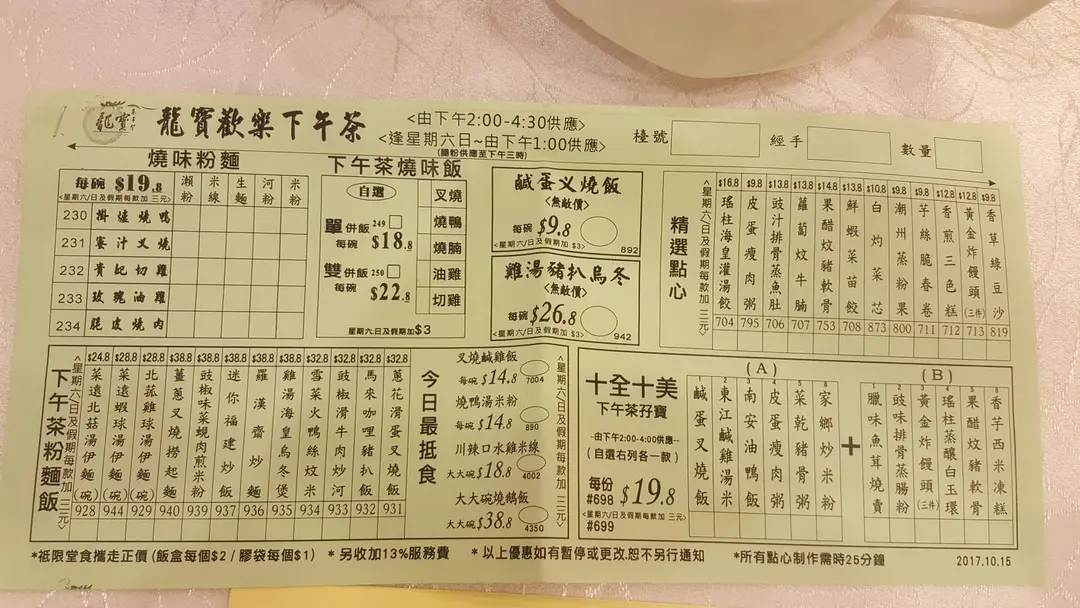 龍寶
龍寶歡樂下午茶
<由下午2:00-4:30供應>
<逢星期六日~由下午1:00供應>
(腸粉供應至下午三時)
檯號
經手
數量
燒味粉麵
每碗 $19.8
<星期六/日及假期每款加 三元>
瀨粉
米線
生麵
河粉
米粉
230 掛爐燒鴨
231 蜜汁叉燒
232 貴妃切雞
233 玫瑰油雞
234 脆皮燒肉
下午茶燒味飯
自選
單併飯 249
每碗 $18.8
雙併飯 250
每碗 $22.8
星期六日及假期加$3
叉燒
燒鴨
燒腩
油雞
切雞
鹹蛋义燒飯
<無敵價>
每碗 $9.8
<星期六/日及假期每款加 $3>
892
雞湯豬扒烏冬
<無敵價>
每碗 $26.8
<星期六/日及假期每款加 $3>
942
精選點心
<星期六/日及假期每款加 三元>
$16.8 瑤柱海皇灌湯餃 704
$9.8 皮蛋瘦肉粥 795
$13.8 豉汁排骨蒸魚肚 706
$13.8 蘿蔔炆牛腩 707
$14.8 果醋炆豬軟骨 753
$13.8 鮮蝦菜苗餃 708
$10.8 白灼菜芯 873
$9.8 潮州蒸粉果 800
$9.8 芋絲脆春卷 711
$12.8 香煎三色糕 712
$12.8 黃金炸饅頭(三件) 713
$9.8 香草綠豆沙 819
下午茶粉麵飯
<星期六/日及假期每款加 三元>
$24.8 菜遠北菇湯伊麵(碗) 928
$28.8 菜遠蝦球湯伊麵(碗) 944
$29.8 北菇雞球湯伊麵(碗) 929
$38.8 薑蔥叉燒撈起麵 940
$38.8 豉椒味菜蜆肉煎米粉 939
$38.8 迷你福建炒飯 937
$38.8 羅漢齋炒麵 936
$38.8 雞湯海皇烏冬煲 935
$32.8 雪菜火鴨絲炆米 934
$32.8 豉椒滑牛肉炒河 933
$32.8 馬來咖哩豬扒飯 932
$32.8 蔥花滑蛋叉燒飯 931
今日最抵食
叉燒鹹雞飯
每碗 $14.8 7004
燒鴨湯米粉
每碗 $14.8 890
川辣口水雞米線
大大碗 $18.8 4002
大大碗燒鵝飯
大大碗 $38.8 4350
<星期六/日及假期每款加 三元>
十全十美
下午茶孖寶
--由下午2:00-4:00供應--
(自選右列各一款)
每份 $19.8
#698
#699
<星期六/日及假期每款加 三元>
(A)
1 鹹蛋叉燒飯
2 東江鹹雞湯米
3 南安油鴨飯
4 皮蛋瘦肉粥
5 菜乾豬骨粥
6 家鄉炒米粉
+
(B)
1 臘味魚茸燒賣
2 豉味排骨蒸腸粉
3 黃金炸饅頭(三件)
4 瑤柱蒸釀白玉環
5 果醋炆豬軟骨
6 香芋西米凍糕
*祗限堂食攜走正價 (飯盒每個$2 / 膠袋每個$1) * 另收加13%服務費 * 以上優惠如有暫停或更改.恕不另行通知 *所有點心制作需時25分鐘 2017.10.15